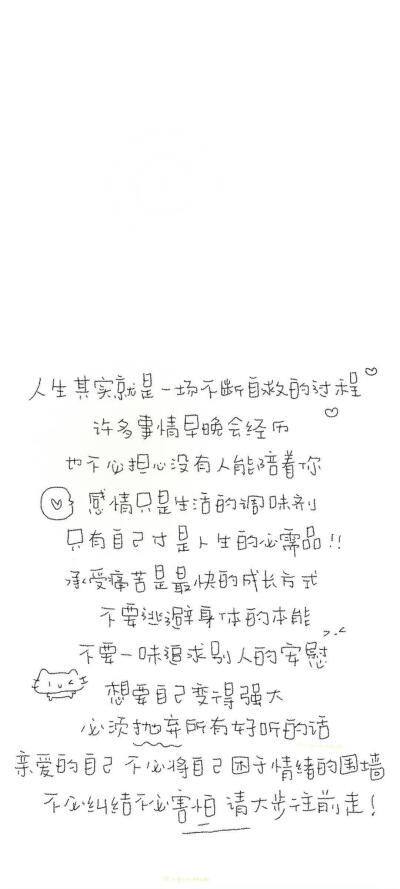 人生其实就是一场不断自救的过程
许多事情早晚会经历
也不必担心没有人能陪着你
感情只是生活的调味剂
只有自己才是人生的必需品!!
承受痛苦是最快的成长方式
不要逃避身体的本能
不要一味追求别人的安慰
想要自己变得强大
必须抛弃所有好听的话
亲爱的自己 不必将自己困于情绪的围墙
不必纠结不必害怕 请大步往前走!